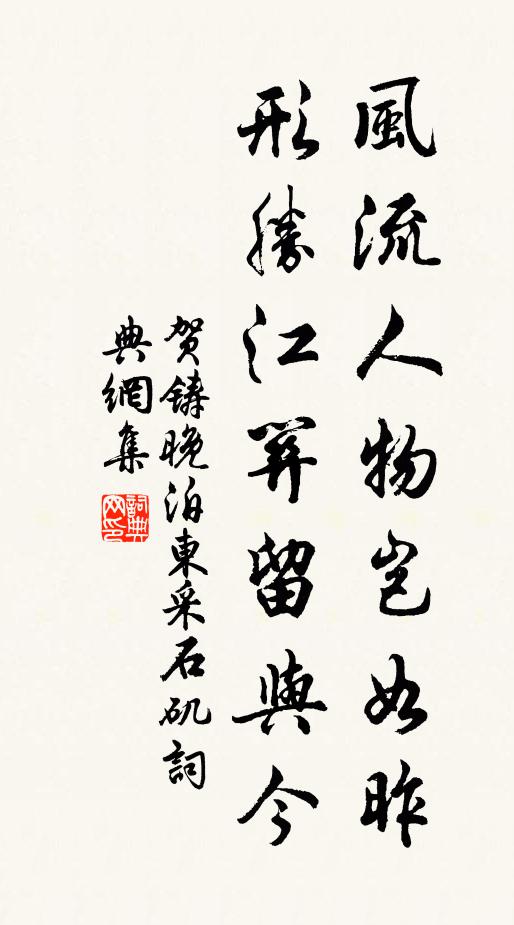 風流人物岂如昨
形勝江關留與今
贺鑄晚泊東采石矶詞
典網集
詞典
网印